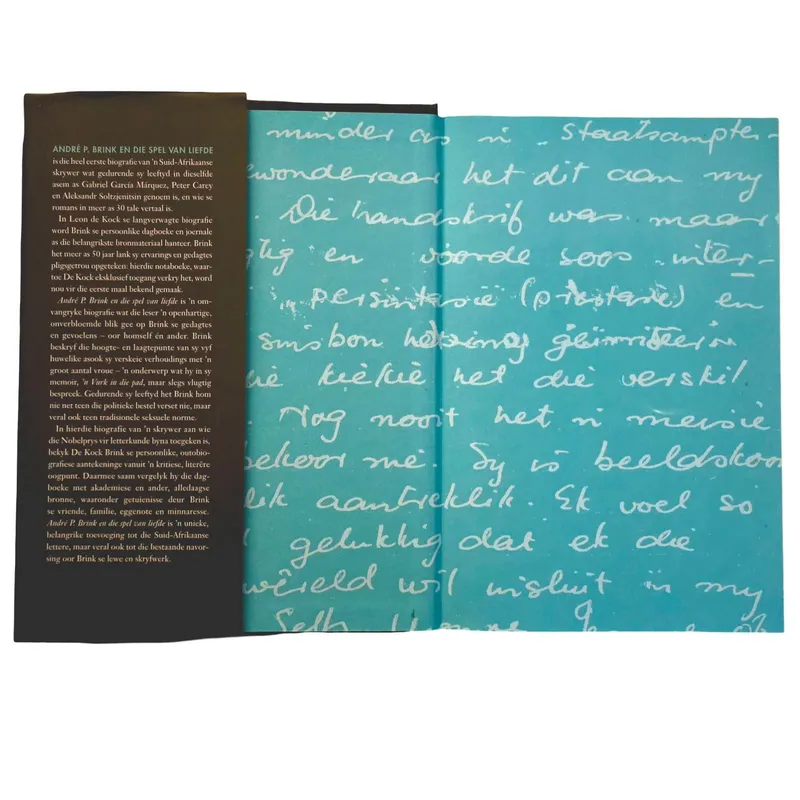 ANDRÉ P. BRINK EN DIE SPEL VAN LIEFDE
is die heel eerste biografie van 'n Suid-Afrikaanse
skrywer wat gedurende sy leeftyd in dieselfde
asem as Gabriel García Márquez, Peter Carey
en Aleksandr Soltzjenitsin genoem is, en wie se
romans in meer as 30 tale vertaal is.
In Leon de Kock se langverwagte biografie
word Brink se persoonlike dagboeke en joernale
as die belangrikste bronmateriaal hanteer. Brink
het meer as 50 jaar lank sy ervarings en gedagtes
pligsgetrou opgeteken: hierdie notaboeke, waar-
toe De Kock eksklusief toegang verkry het, word
nou vir die eerste maal bekend gemaak.
André P. Brink en die spel van liefde is 'n om-
vangryke biografie wat die leser 'n openhartige,
onverbloemde blik gee op Brink se gedagtes
en gevoelens – oor homself én ander. Brink
beskryf die hoogte- en laagtepunte van sy vyf
huwelike asook sy verskeie verhoudings met 'n
groot aantal vroue – 'n onderwerp wat hy in sy
memoir, 'n Vurk in die pad, maar slegs vlugtig
bespreek. Gedurende sy leeftyd het Brink hom
nie net teen die politieke bestel verset nie, maar
veral ook teen tradisionele seksuele norme.
In hierdie biografie van 'n skrywer aan wie
die Nobelprys vir letterkunde byna toegeken is,
bekyk De Kock Brink se persoonlike, outobio-
grafiese aantekeninge vanuit 'n kritiese, literêre
oogpunt. Daarmee saam vergelyk hy die dag-
boeke met akademiese en ander, alledaagse
bronne, waaronder getuienisse deur Brink
se vriende, familie, eggenote en minnaresse.
André P. Brink en die spel van liefde is 'n unieke,
belangrike toevoeging tot die Suid-Afrikaanse
lettere, maar veral ook tot die bestaande navor-
sing oor Brink se lewe en skryfwerk.
minder as 'n staatsampte-
wonderaar het dit aan my
. Die handskrif was maar
gtig en woorde soos inter-
en
die kiekie het die verskil
. Nog nooit het 'n meisie
bekoor nie. Sy is beeldskoon
lik aantreklik. Ek voel so
gelukkig dat ek die
wêreld wil insluit in my